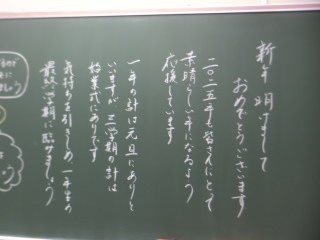 新年明けまして
おめでとうございます
二〇一五年も皆さんにとって
素晴らしい年になるよう
応援しています
一年の計は元旦にありと
いいますが、三学期の計は
始業式にありです
気持ちを引きしめ、一年生の
最終学期に臨みましょう